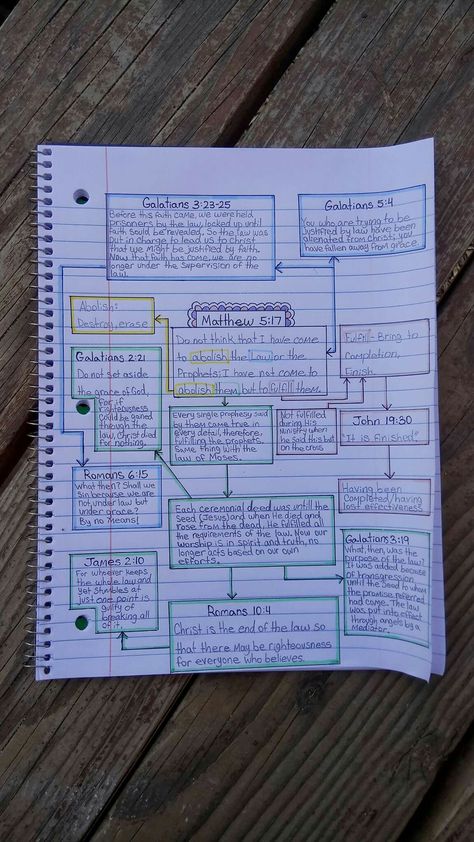 Galatians 3:23-25
Before this faith came, we were held
prisoners by the law, locked up until
faith sould be revealed. So the law was
put in charge to lead us to Christ
that we might be justified by faith.
Now that faith has come, we are no
longer under the supervision of the
law.
Galatians 5:4
You who are trying to be
justified by law have been
alienated from Christ; you
have fallen away from grace.
Abolish:
Destroy, erase
Matthew 5:17
Do not think that I have come
to abolish the Law or the
Prophets; I have not come to
abolish them, but to fulfill them.
Fulfill - Bring to
Completion,
Finish.
Galatians 2:21
Do not set aside
the grace of God,
for if
righteousness
could be gained
through the
law, Christ died
for nothing.
Every single Prophesy said
by them came true in
every detail, therefore,
fulfilling the prophets.
Same thing with the
law of Moses.
Not fulfilled
during His
ministry when
he said this but
on the cross
John 19:30
"It is finished"
Having been
completed/having
lost effectiveness
Romans 6:15
What then? Shall we
Sin because we are
not under law but
under grace?
By no means!
Each ceremonial deed was untill the
Seed (Jesus) and when He died and
rose from the dead, He fulfilled all
the requirements of the law. Now our
worship is in spirit and truth, no
longer acts based on our own
efforts.
Galatians 3:19
What, then, was the
purpose of the law?
It was added because
of transgression
until the Seed to whom
the promise referred
had come. The law
was put into effect
through angels by a
Mediator.
James 2:10
For whoever keeps
the whole law and
yet stumbles at
just one point is
guilty of
breaking all
of it.
Romans 10:4
Christ is the end of the law so
that there may be righteousness
for everyone who believes.